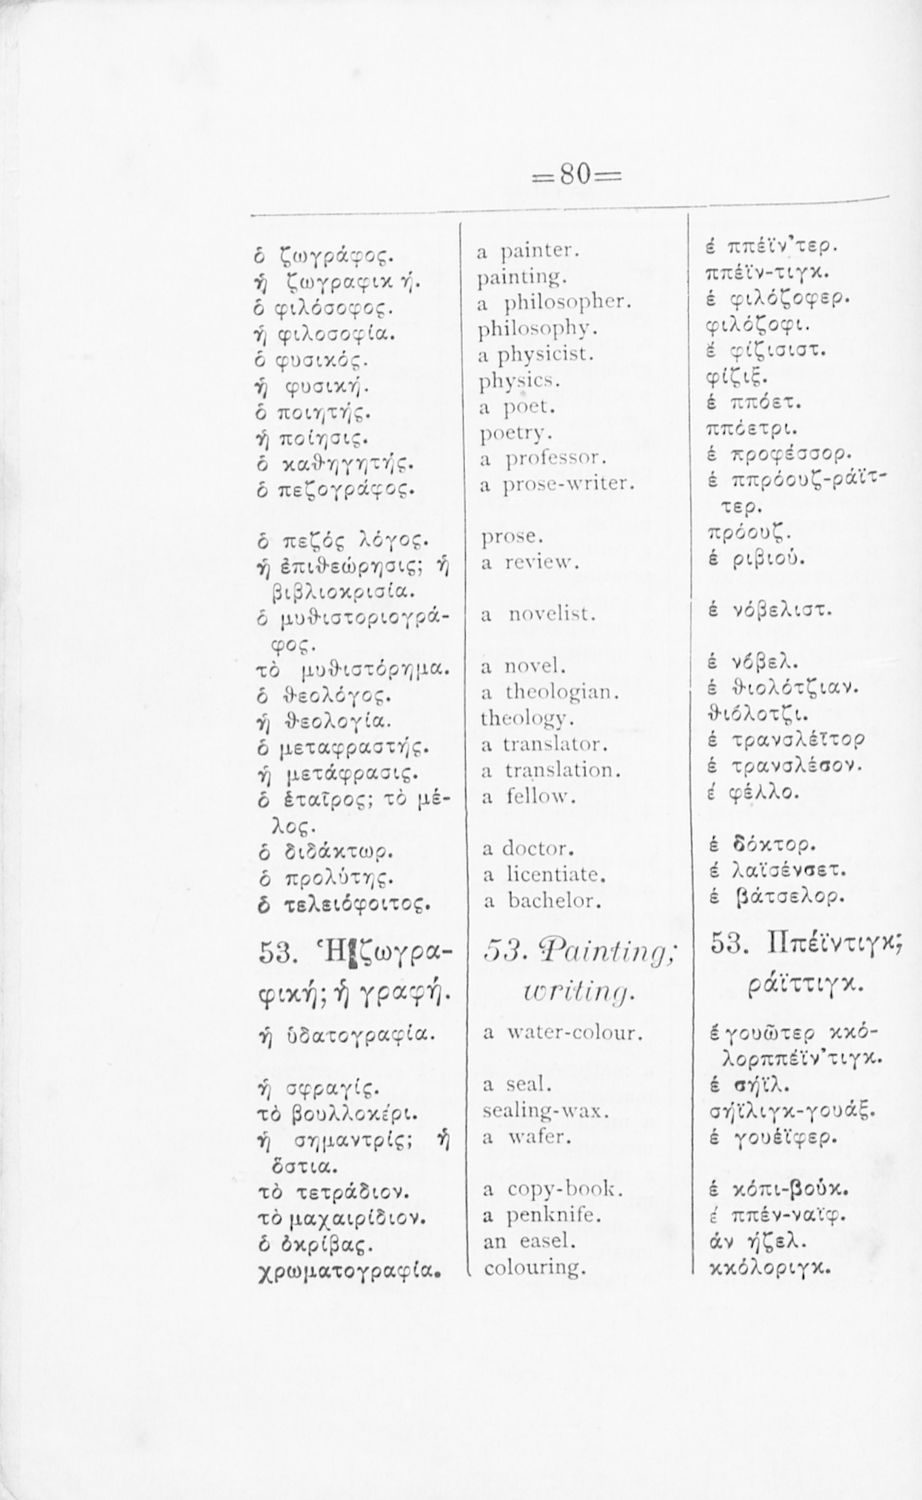 =80=
ὁ ζωγράφος. a painter. ἐ ππέϊν᾽τερ.
ἡ ζωγραφικ ή. painting. ππέϊν-τιγκ.
ὁ φιλόσοφος. a philosopher. ἐ φιλόζοφερ.
ἡ φιλοσοφία. philosophy. φιλόζοφι.
ὁ φυσικός. a physicist. ἐ φίζισιστ.
ἡ φυσική. physics. φίζιξ.
ὁ ποιητής. a poet. ἐ ππόετ.
ἡ ποίησις. poetry. ππόετρι.
ὁ καθηγητής. a professor. ἐ προφέσσορ.
ὁ πεζογράφος. a prose-writer. ἐ ππρόουζ-ράϊτ-
τερ.
ὁ πεζός λόγος. prose. πρόουζ.
ἡ ἐπιθεώρησις; ἡ a review. ἐ ριβιού.
βιβλιοκρισία.
ὁ μυθιστοριογρά- a novelist. ἐ νόβελιστ.
φος.
τὸ μυθιστόρημα. a novel. ἐ νόβελ.
ὁ θεολόγος. a theologian. ἐ θιολότζιαν.
ἡ θεολογία. theology. θιόλοτζι.
ὁ μεταφραστής. a translator. ἐ τρανσλέϊτορ
ἡ μετάφρασις. a translation. ἐ τρανσλέσον.
ὁ ἑταῖρος; τὸ μέ- a fellow. ἐ φέλλο.
λος.
ὁ διδάκτωρ. a doctor. ἐ δόκτορ.
ὁ προλύτης. a licentiate. ἐ λαϊσένσετ.
ὁ τελειόφοιτος. a bachelor. ἐ βάτσελορ.
53. Ἡ ζωγρα- 53. Painting; 53. Ππέϊντιγκ;
φική; ἡ γραφή. writing. ράϊττιγκ.
ἡ ὑδατογραφία. a water-colour. ἐ γουῶτερ κκό-
λορππέϊν᾽τιγκ.
ἡ σφραγίς. a seal. ἐ σήϊλ.
τὸ βουλλοκέρι. sealing-wax. σήϊλιγκ-γουάξ.
ἡ σημαντρίς; ἡ a wafer. ἐ γουέϊφερ.
ὅστια.
τὸ τετράδιον. a copy-book. ἐ κόπι-βούκ.
τὸ μαχαιρίδιον. a penknife. ἐ ππέν-ναϊφ.
ὁ ὀκρίβας. an easel. ἀν ήζελ.
χρωματογραφία. colouring. κκόλοριγκ.